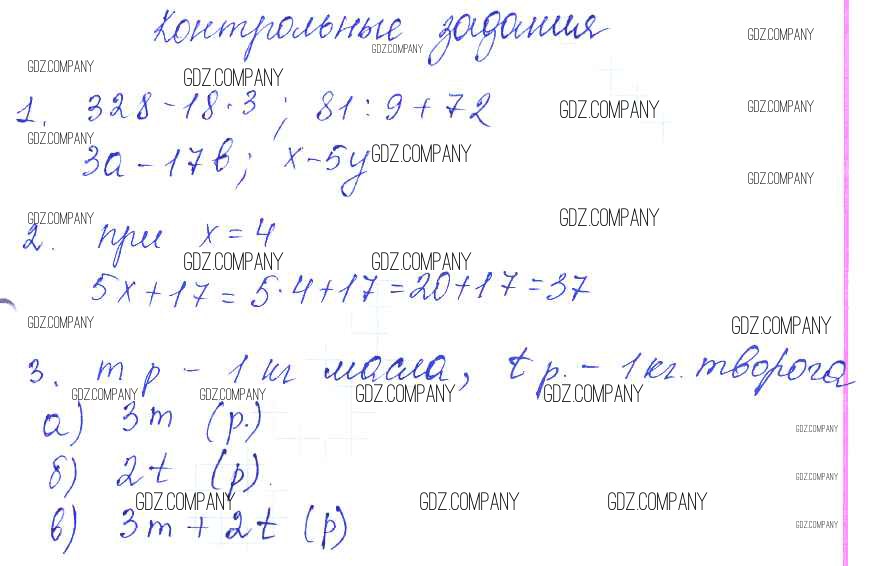 Контрольные задания
GDZ.COMPANY GDZ.COMPANY
GDZ.COMPANY GDZ.COMPANY
1. 328 - 18 · 3 ; 81 : 9 + 72
GDZ.COMPANY GDZ.COMPANY
GDZ.COMPANY
3a - 17b ; x - 5y
GDZ.COMPANY
GDZ.COMPANY
GDZ.COMPANY GDZ.COMPANY
2. при x = 4
GDZ.COMPANY GDZ.COMPANY
5x + 17 = 5 · 4 + 17 = 20 + 17 = 37
GDZ.COMPANY GDZ.COMPANY
3. m р - 1 кг масла, t р. - 1 кг. творога
GDZ.COMPANY GDZ.COMPANY GDZ.COMPANY GDZ.COMPANY
а) 3m (р.)
GDZ.COMPANY
б) 2t (р).
GDZ.COMPANY
GDZ.COMPANY GDZ.COMPANY GDZ.COMPANY
в) 3m + 2t (р)
GDZ.COMPANY